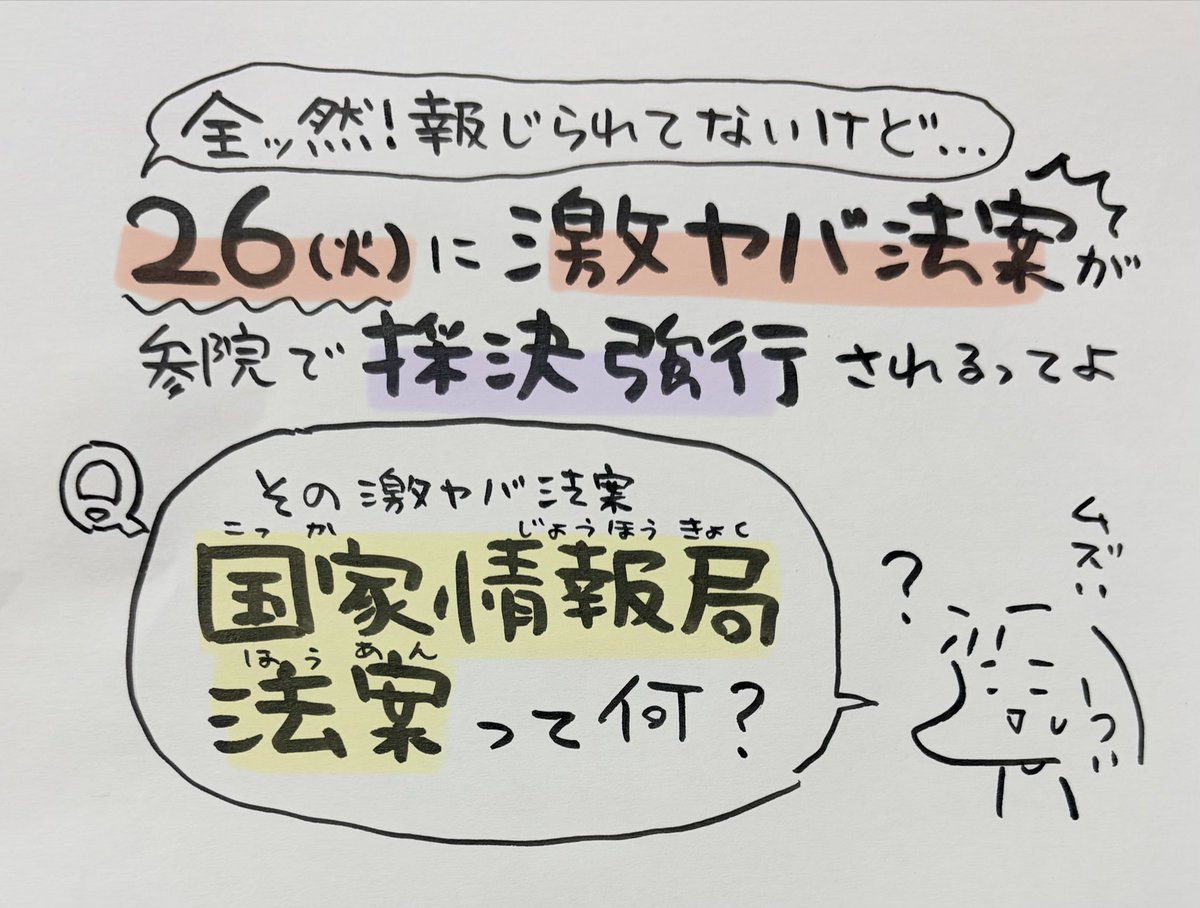 全ッ然!報じられてないけど...
26(火)に激ヤバ法案が
参院で採決強行されるってよ
Q
その激ヤバ法案
こっか じょうほうきょく
国家情報局
ほうあん
法案って何?
?
ムズ